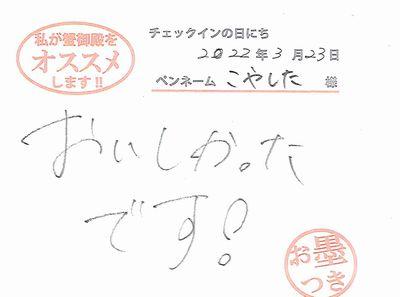 私が蟹御殿を
オススメ
します!!
チェックインの日にち
2022年3月23日
ペンネーム こやした 様
おいしかった
です!
お墨
つき